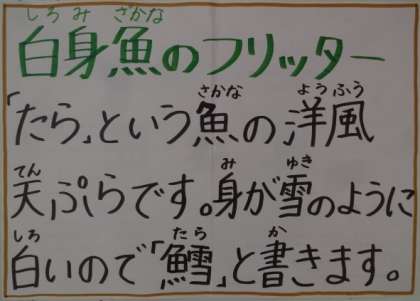 しろみざかな
白身魚のフリッター
さかな ようふう
「たら」という魚の洋風
てん み ゆき
天ぷらです。身が雪のように
しろ たら か
白いので「鱈」と書きます。